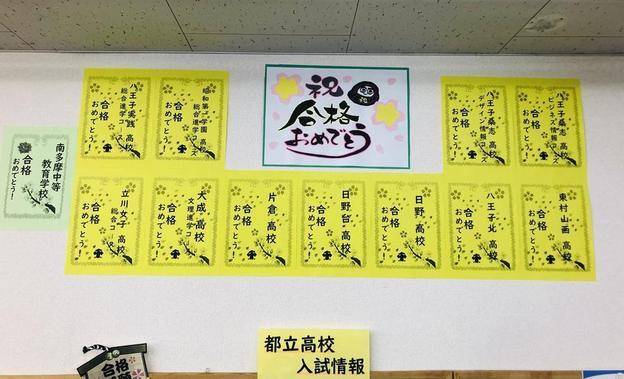 祝
合格
おめでとう
八王子実践 高校
総合進学コース
合格
おめでとう!
昭和第一学園 高校
総合進学コース
合格
おめでとう!
八王子桑志 高校
デザイン情報コース
合格
おめでとう!
八王子桑志 高校
ビジネス情報コース
合格
おめでとう!
南多摩中等
教育学校
合格
おめでとう!
立川女子 高校
総合コース
合格
おめでとう!
大成 高校
文理進学コース
合格
おめでとう!
片倉 高校
合格
おめでとう!
日野台 高校
合格
おめでとう!
日野 高校
合格
おめでとう!
八王子北 高校
合格
おめでとう!
東村山西 高校
合格
おめでとう!
都立高校
入試情報
合格